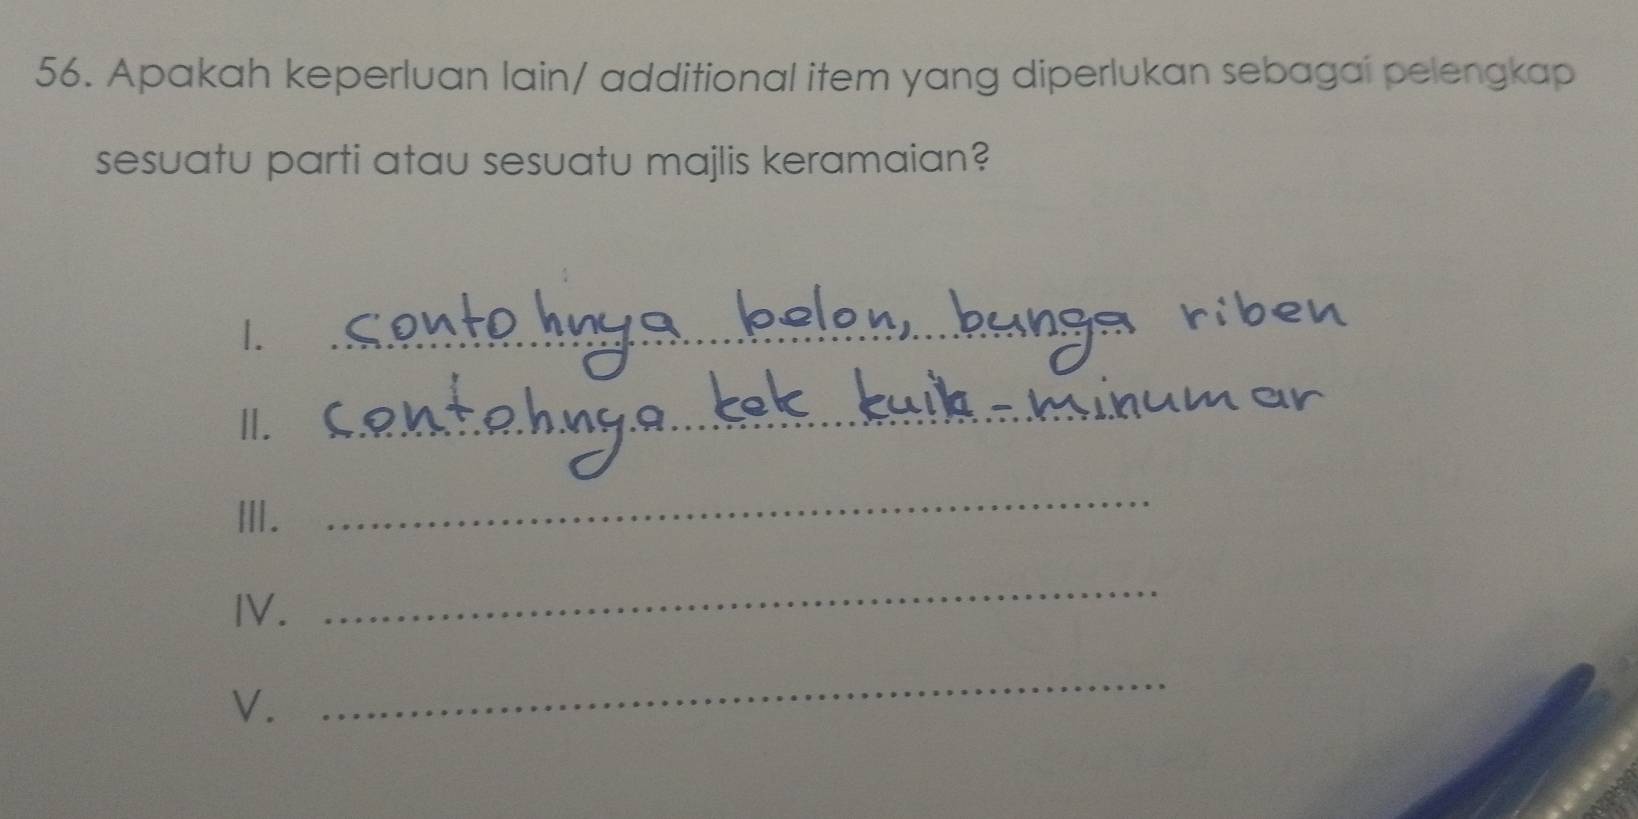 56. Apakah keperluan lain/ additional item yang diperlukan sebagai pelengkap
sesuatu parti atau sesuatu majlis keramaian?
I. contohnya belon, bunga riben
II. contohnya kek kuih-minuman
III.
IV.
V.